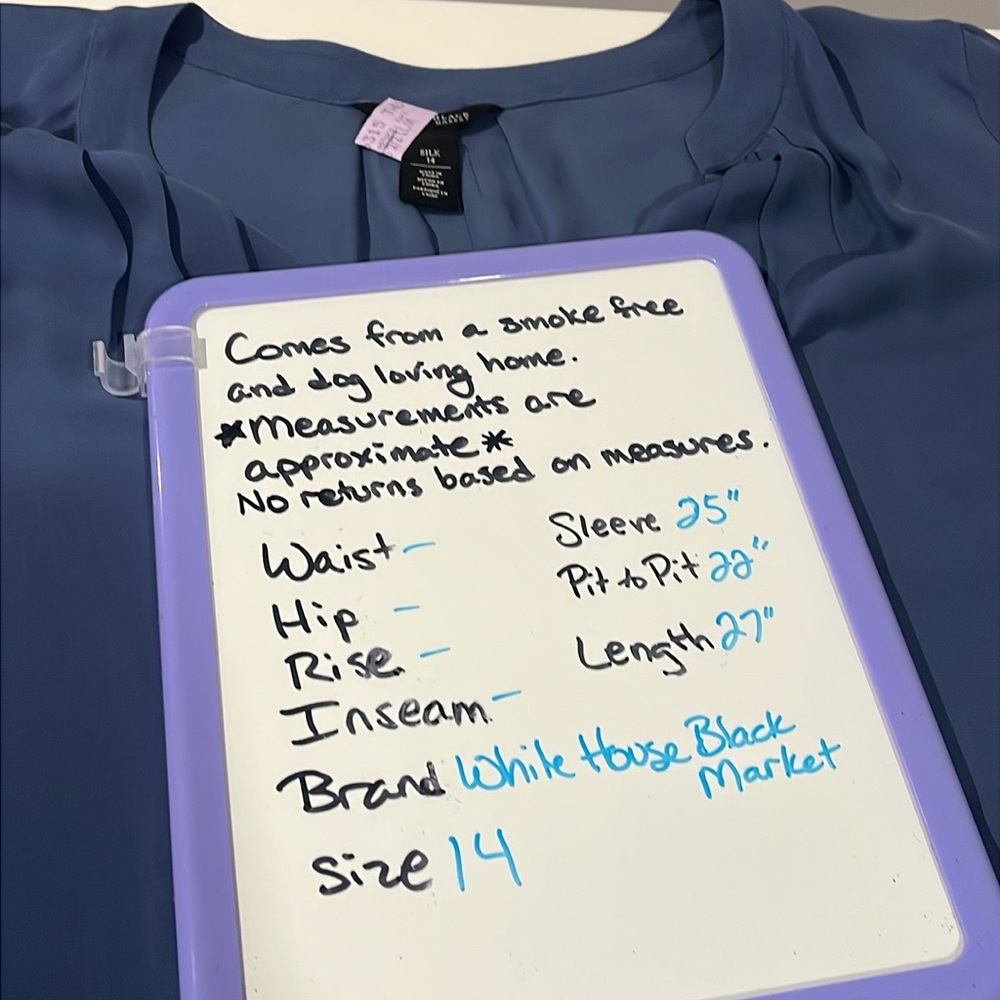 SILK
14
Comes from a smoke free
and dog loving home.
*Measurements are
approximate*
No returns based on measures.
Waist -
Hip -
Rise -
Inseam -
Sleeve 25"
Pit to Pit 22"
Length 27"
Brand White House Black
Market
Size 14